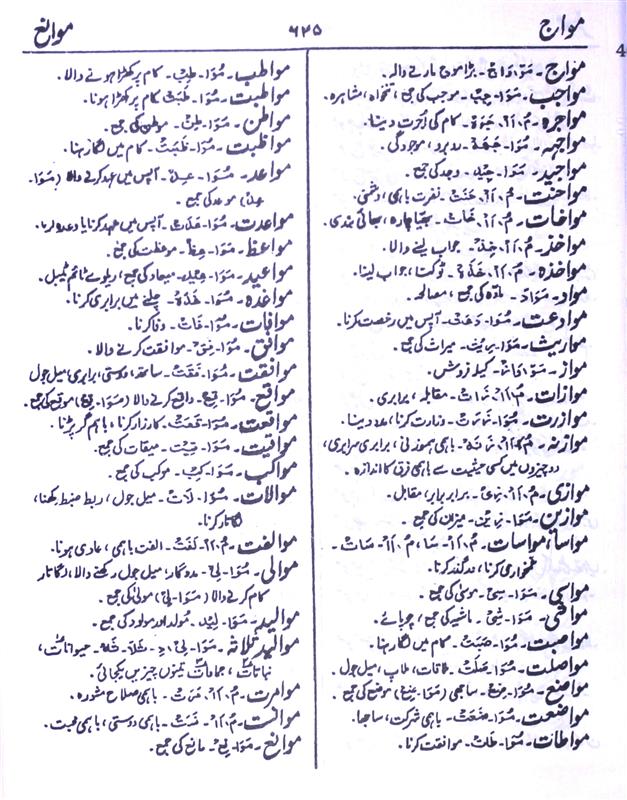 مواج
۶۲۵
موانع
4
مواج۔ مَوْ، وَاجْ۔ بڑا موج مارنے والا۔
مواجب۔ مَوَا۔ جِبْ۔ موجب کی جمع، تنخواہ، مشاہرہ۔
مواجرہ۔ کام کی اُجرت دینا۔
مواجہہ۔ مُوَا۔ جَہَہْ۔ روبرو، موجودگی۔
مواجید۔ مَوَا۔ جِیْد۔ وجد کی جمع۔
مواحنت۔ نفرت باہمی، دشمنی۔
مواخات۔ بھیا چارہ، بھائی بندی۔
مواخذ۔ جواب لینے والا۔
مواخذہ۔ ٹوکنا، جواب لینا۔
مواد۔ مَوَادْ۔ مادّہ کی جمع، مصالحہ۔
موادعت۔ مُوَا۔ دَعَتْ۔ آپس میں رخصت کرنا۔
مواریث۔ مَوَا۔ رِیْث۔ میراث کی جمع۔
مواز۔ مَوْ، وَازْ۔ کیلہ فروش۔
موازات۔ مقابلہ، برابری۔
موازرت۔ مُوَا۔ زَرَتْ۔ وزارت کرنا، مدد دینا۔
موازنہ۔ باہمی ہموزنی، برابری سرابری،
دو چیزوں میں کسی حیثیت سے باہمی فرق کا اندازہ۔
موازی۔ برابر برابر، مقابل۔
موازین۔ مَوَا۔ زِیْن۔ میزان کی جمع۔
مواساۃ، مواسات۔
غمخواری کرنا، مدد کرنا۔
مواسی۔ مَوَا۔ سِیْ۔ موسیٰ کی جمع۔
مواشی۔ مَوَا۔ شِیْ۔ ماشیہ کی جمع، چوپائے۔
مواصبت۔ مُوَا۔ صَبَتْ۔ کام میں لگا رہنا۔
مواصلت۔ مُوَا۔ صَلَتْ۔ ملاقات، ملاپ، میل جول۔
مواضع۔ مُوَا۔ ضِعْ۔ ساجھی (مَوَا۔ ضِعْ) موضع کی جمع۔
مواضعت۔ مُوَا۔ ضَعَتْ۔ باہمی شرکت، ساجھا۔
مواطات۔ مُوَا۔ طَاتْ۔ موافقت کرنا۔
مواظب۔ مُوَا۔ ظِبْ۔ کام پر کھڑا ہونے والا۔
مواظبت۔ مُوَا۔ ظَبَتْ۔ کام پر کھڑا ہونا۔
مواطن۔ مَوَا۔ طِنْ۔ موطن کی جمع۔
مواظبت۔ مُوَا۔ ظَبَتْ۔ کام میں لگا رہنا۔
مواعد۔ مُوَا۔ عِدْ۔ آپس میں عہد کرنے والا (مَوَا۔
عِدْ) موعد کی جمع۔
مواعدت۔ مُوَا۔ عَدَتْ۔ آپس میں عہد کرنا یا وعدہ کرنا۔
مواعظ۔ مَوَا۔ عِظْ۔ موعظت کی جمع۔
مواعید۔ مَوَا۔ عِیْد۔ میعاد کی جمع، ریلوے ٹائم ٹیبل۔
مواغدہ۔ مُوَا۔ غَدَہْ۔ چلنے میں برابری کرنا۔
موافات۔ مُوَا۔ فَاتْ۔ وفا کرنا۔
موافق۔ مُوَا۔ فِقْ۔ موافقت کرنے والا۔
موافقت۔ مُوَا۔ فَقَتْ۔ ساتھ، دوستی، برابری، میل جول
مواقع۔ مُوَا۔ قِعْ۔ واقع کرنے والا (مَوَا۔ قِعْ) موقع کی جمع۔
مواقعت۔ مُوَا۔ قَعَتْ۔ کارزار کرنا، باہم گر پڑنا۔
مواقیت۔ مَوَا۔ قِیْتْ۔ میقات کی جمع۔
مواکب۔ مَوَا۔ کِبْ۔ موکب کی جمع۔
موالات۔ مُوَا۔ لَاتْ۔ میل جول، ربط ضبط رکھنا،
لگاتار کرنا۔
موالفت۔ الفت باہمی، عادی ہونا۔
موالی۔ مُوَا۔ لِیْ۔ مددگار، میل جول رکھنے والا، لگاتار
کام کرنے والا (مَوَا۔ لِیْ) مولیٰ کی جمع۔
موالید۔ مَوَا۔ لِیْد۔ مُولد اور مولود کی جمع۔
موالید ثلاثہ۔ حیوانات،
نباتات، جمادات تینوں چیزیں یکجائی۔
موامرت۔ باہمی صلاح مشورہ۔
موانست۔ باہمی دوستی، باہمی محبت۔
موانع۔ مَوَا۔ نِعْ۔ مانع کی جمع۔